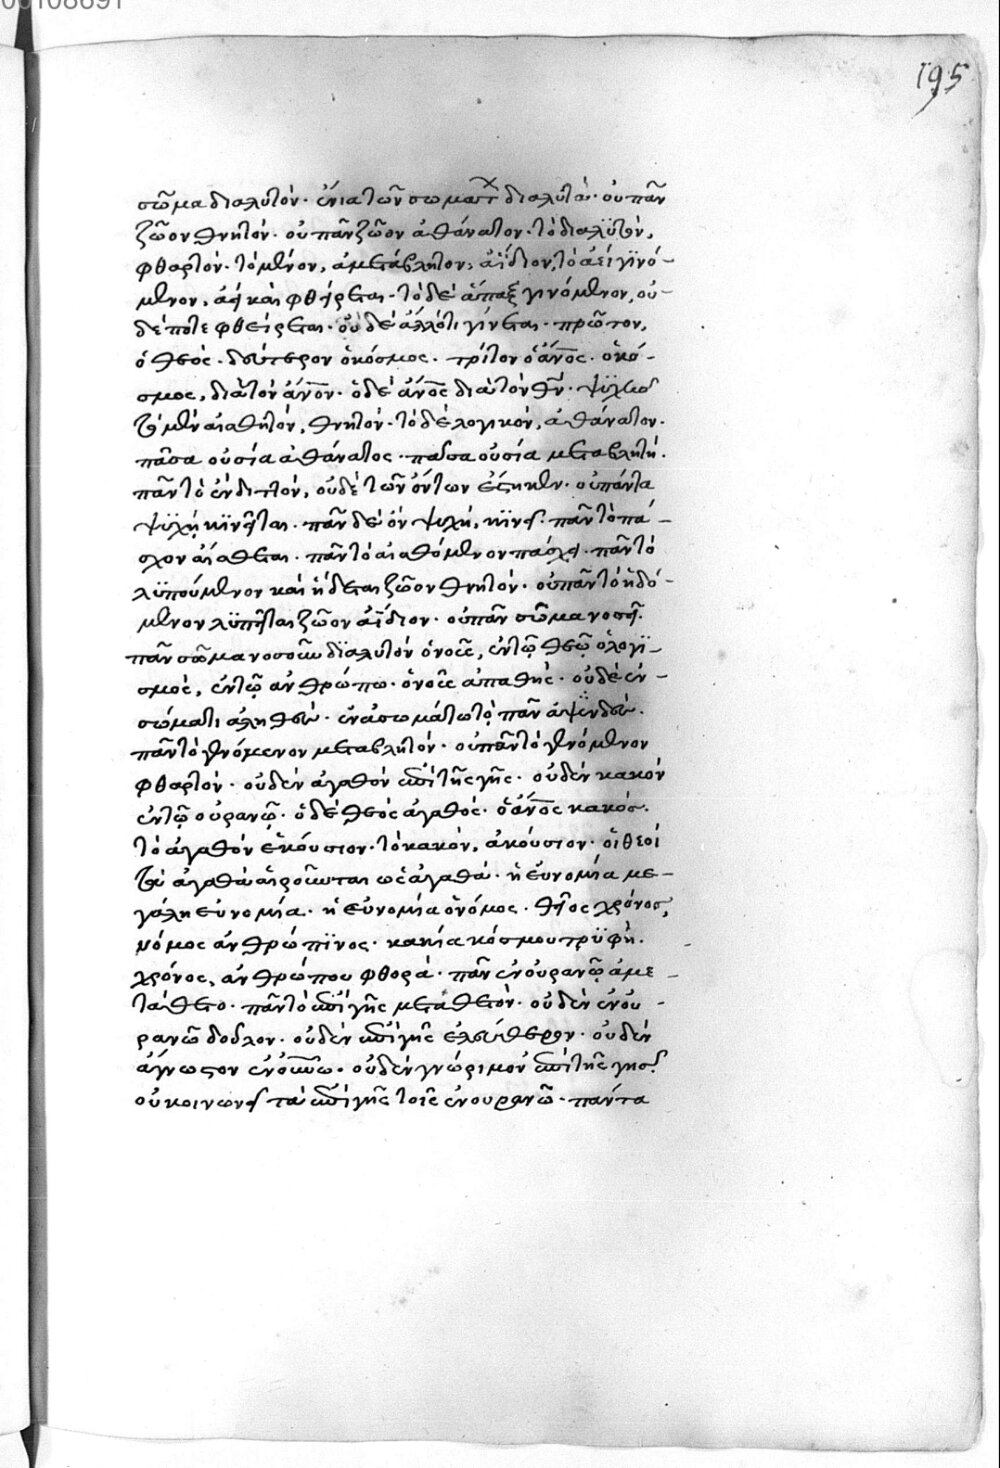 00108691
195
σῶμα διαλυτόν· ἔνια τῶν σωμάτων διαλυτά· οὐ πᾶν
ζῶον θνητόν· οὐ πᾶν ζῶον ἀθάνατον· τὸ διαλϋτὸν,
φθαρτόν· τὸ μένον, ἀμετάβλητον, ἀΐδιον, τὸ ἀεὶ γϊνό-
μενον, ἀεὶ καὶ φθείρεται· τὸ δὲ ἅπαξ γινόμενον, οὐ-
δέποτε φθείρεται· οὐδὲ ἄλλό τι γίνεται· πρῶτον,
ὁ θεός· δεύτερον ὁ κόσμος· τρίτον ὁ ἄνος· ὁ κό-
σμος, διὰ τὸν ἄνον· ὁ δὲ ἄνος διὰ τὸν θν· ψϋχῆς
τὸ μὲν αἰσθητόν, θνητόν· τὸ δὲ λογικόν, ἀθάνατον·
πᾶσα οὐσία ἀθάνατος· πᾶσα οὐσία μεταβλητή·
πᾶν τὸ ὂν διττόν, οὐδὲ τῶν ὄντων ἕστηκεν· οὐ πάντα
ψϋχῇ κϊνεῖται· πᾶν δὲ ὂν ψυχὴ κϊνεῖ· πᾶν τὸ πά-
σχον αἴσθεται· πᾶν τὸ αἰσθόμενον πάσχει· πᾶν τὸ
λϋπούμενον καὶ ἥδεται ζῶον θνητόν· οὐ πᾶν τὸ ἡδό-
μενον λϋπεῖται ζῶον ἀΐδιον· οὐ πᾶν σῶμα νοσεῖ·
πᾶν σῶμα νοσοῦν δϊαλυτόν ὁ νοῦς, ἐν τῷ θεῷ ὁ λογϊ-
σμός, ἐν τῷ ἀνθρώπω· ὁ νοῦς ἀπαθής· οὐδὲν ἐν
σώματι ἀληθές· ἐν ἀσωμάτω τὸ πᾶν ἀψευδές·
πᾶν τὸ γενόμενον μεταβλητόν· οὐ πᾶν τὸ γενόμενον
φθαρτόν· οὐδὲν ἀγαθὸν ἐπὶ τῆς γῆς· οὐδὲν κακὸν
ἐν τῷ οὐρανῷ· ὁ δὲ θεὸς ἀγαθός· ὁ ἄνος κακός·
τὸ ἀγαθὸν ἑκούσιον· τὸ κακὸν, ἀκούσιον· οἱ θεοὶ
τὰ ἀγαθὰ αἱροῦνται ὡς ἀγαθά· ἡ εὐνομία με-
γάλη εὐνομία· ἡ εὐνομία ὁ νόμος· θεῖος χρόνος,
νόμος ἀνθρώπϊνος· κακία κόσμου τρϋφή·
χρόνος, ἀνθρώπου φθορά· πᾶν ἐν οὐρανῷ ἀμε-
τάθετο· πᾶν τὸ ἐπὶ γῆς μεταθετόν· οὐδὲν ἐν οὐ-
ρανῶ δοῦλον· οὐδὲν ἐπὶ γῆς ἐλεύθερον· οὐδὲν
ἄγνωστον ἐν οὐνῶ· οὐδὲν γνώριμον ἐπὶ τῆς γῆς·
οὐ κοινωνεῖ τὰ ἐπὶ γῆς τοῖς ἐν ουρανῶ· πάντα